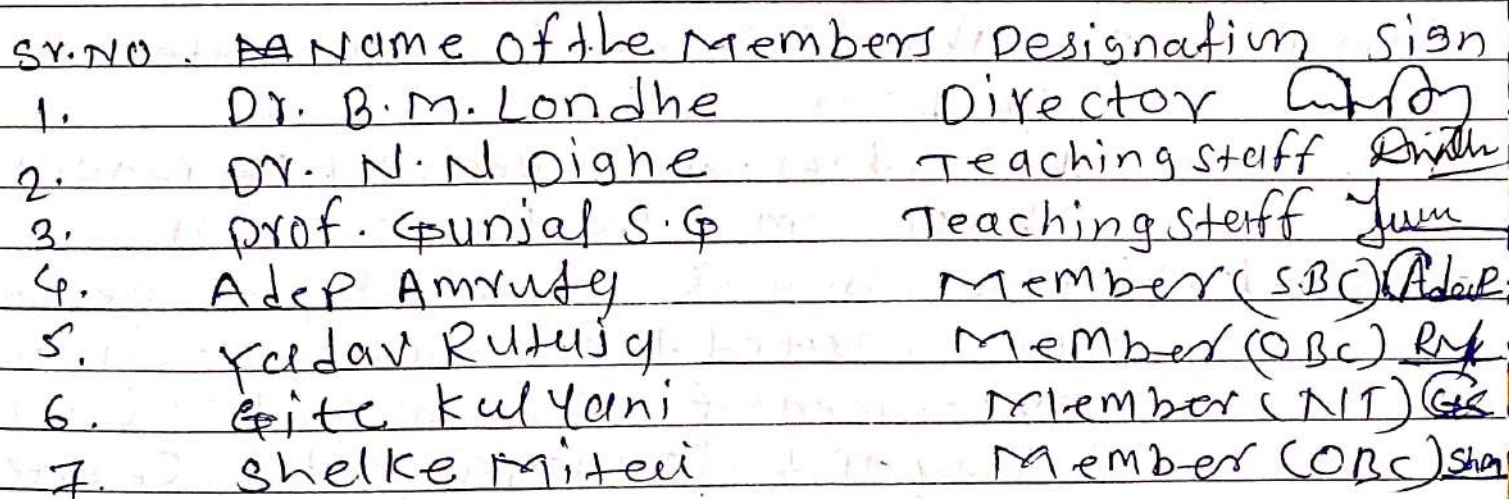 Sr.No. Name of the Members Designation Sign
1. Dr. B.M. Londhe Director
2. Dr. N.N Dighe Teaching staff
3. Prof. Gunjal S.G Teaching staff
4. Adep Amruta Member (S.BC) Adep
5. Yadav Rutuja Member (OBC)
6. Gite Kalyani Member (NT) GK
7. Shelke Mitali Member (OBC)